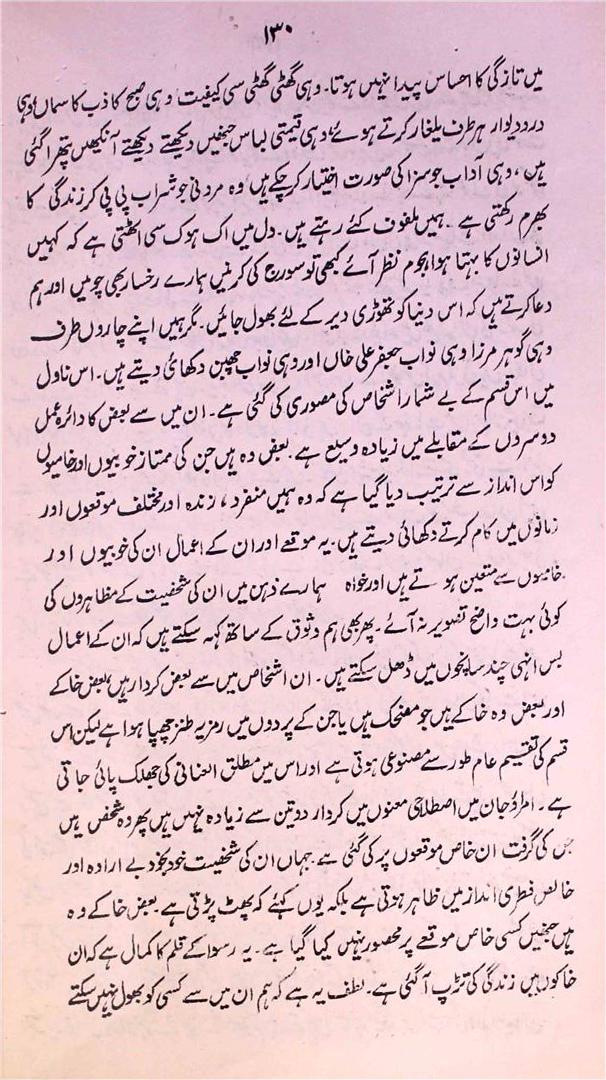 ۱۳۰
میں تازگی کا احساس پیدا نہیں ہوتا۔ وہی گھٹی گھٹی سی کیفیت وہی صبح کاذب کا سماں وہی
در و دیوار ہر طرف یلغار کرتے ہوئے، وہی قیمتی لباس جنہیں دیکھتے دیکھتے آنکھیں پتھرا گئی
ہیں، وہی آداب جو سزا کی صورت اختیار کر چکے ہیں وہ مردنی جو شراب پی پی کر زندگی کا
بھرم رکھتی ہے۔ ہمیں ملفوف کئے رہتے ہیں۔ دل میں اک ہوک سی اٹھتی ہے کہ کہیں
انسانوں کا بہتا ہوا ہجوم نظر آئے کبھی تو سورج کی کرنیں ہمارے رخسار بھی چومیں اور ہم
دعا کرتے ہیں کہ اس دنیا کو تھوڑی دیر کے لئے بھول جائیں۔ مگر ہمیں اپنے چاروں طرف
وہی گوہر مرزا وہی نواب جعفر علی خاں اور وہی نواب چھبن دکھائی دیتے ہیں۔ اس ناول
میں اس قسم کے بے شمار اشخاص کی مصوری کی گئی ہے۔ ان میں سے بعض کا دائرہ عمل
دوسروں کے مقابلے میں زیادہ وسیع ہے۔ بعض وہ ہیں جن کی ممتاز خوبیوں اور خامیوں
کو اس انداز سے ترتیب دیا گیا ہے کہ وہ ہمیں منفرد، زندہ اور مختلف موقعوں اور
زمانوں میں کام کرتے دکھائی دیتے ہیں۔ یہ موقعے اور ان کے اعمال ان کی خوبیوں اور
خامیوں سے متعین ہوتے ہیں اور خواہ ہمارے ذہن میں ان کی شخصیت کے مظاہروں کی
کوئی بہت واضح تصویر نہ آئے۔ پھر بھی ہم وثوق کے ساتھ کہہ سکتے ہیں کہ ان کے اعمال
بس انہی چند سانچوں میں ڈھل سکتے ہیں۔ ان اشخاص میں سے بعض کردار ہیں، بعض خاکے
اور بعض وہ خاکے ہیں جو مضحک ہیں یا جن کے پردوں میں رمزیہ طنز چھپا ہوا ہے لیکن اس
قسم کی تقسیم عام طور سے مصنوعی ہوتی ہے اور اس میں مطلق العنانی کی جھلک پائی جاتی
ہے۔ امراؤ جان میں اصطلاحی معنوں میں کردار دو تین سے زیادہ نہیں ہیں پھر وہ شخص ہیں
جن کی گرفت ان خاص موقعوں پر کی گئی ہے۔ جہاں ان کی شخصیت خود بخود بے ارادہ اور
خالص فطری انداز میں ظاہر ہوتی ہے بلکہ یوں کہئے کہ پھٹ پڑتی ہے۔ بعض خاکے وہ
ہیں جنہیں کسی خاص موقعے پر محصور نہیں کیا گیا ہے۔ یہ رسوا کے قلم کا کمال ہے کہ ان
خاکوں میں زندگی کی تڑپ آ گئی ہے۔ لطف یہ ہے کہ ہم ان میں سے کسی کو بھول نہیں سکتے